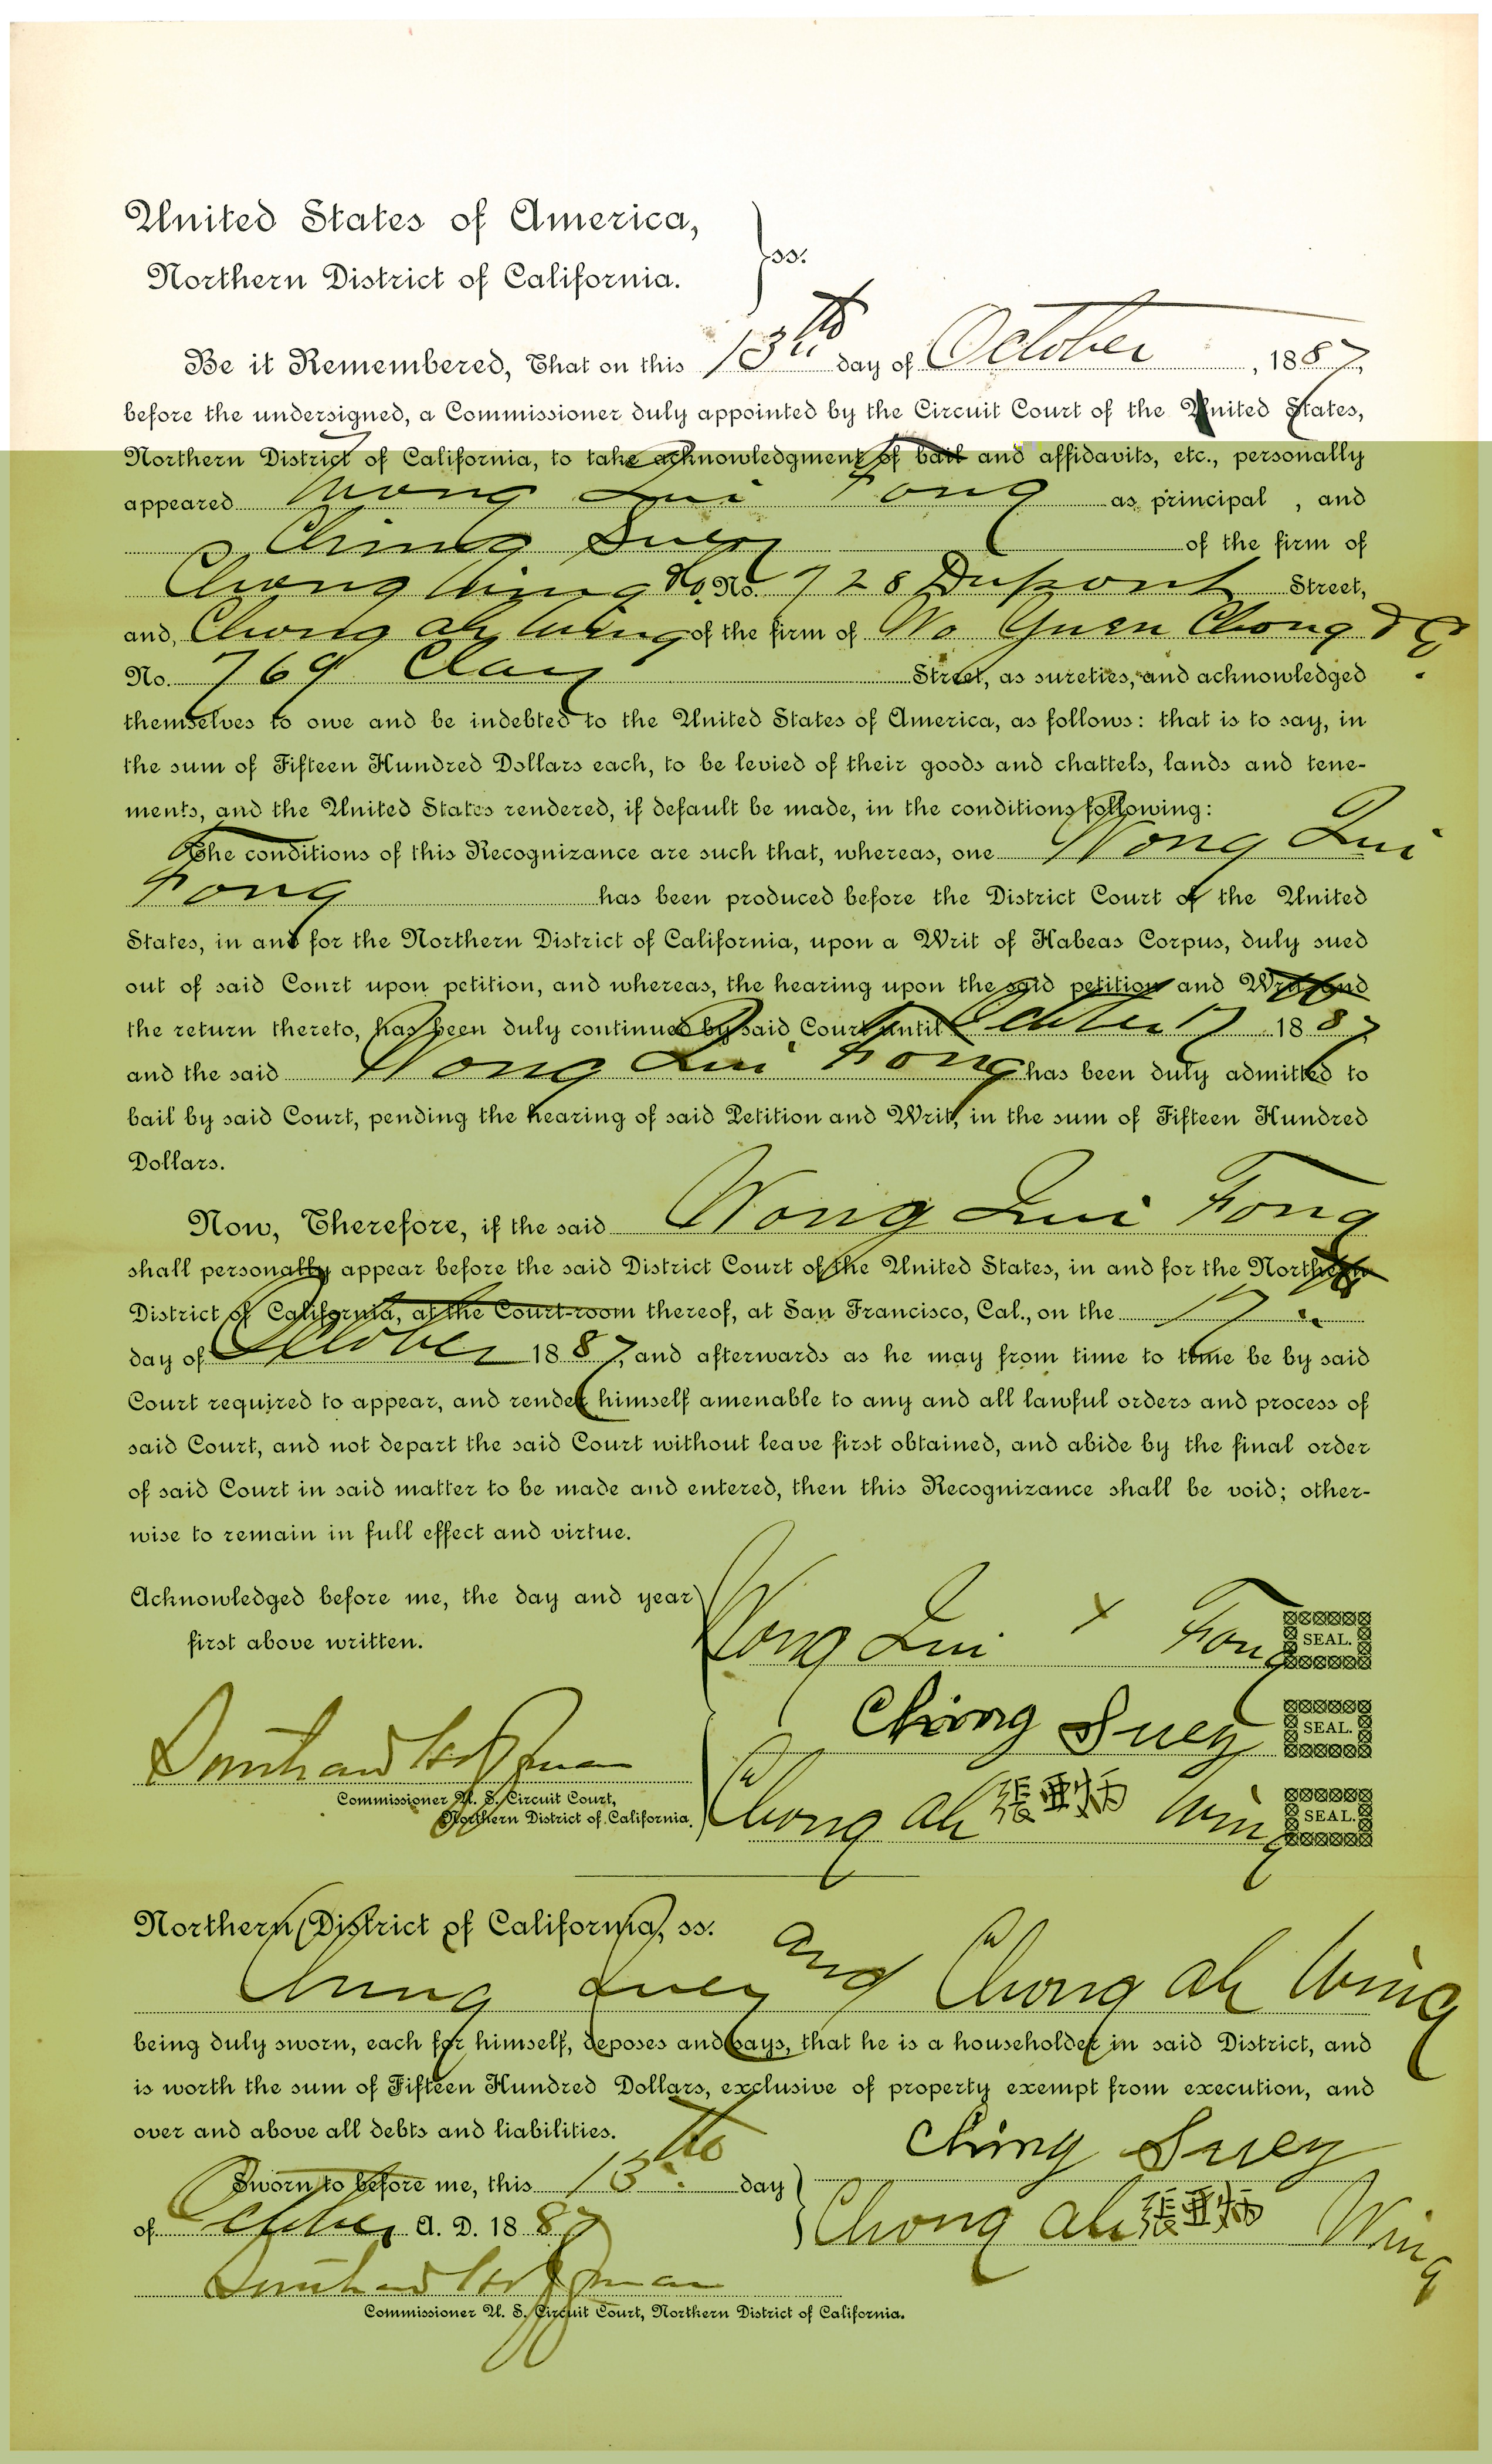 United States of America,
Northern District of California. } ss.
Be it Remembered, That on this 13th day of October, 1887,
before the undersigned, a Commissioner duly appointed by the Circuit Court of the United States,
Northern District of California, to take acknowledgment of bail and affidavits, etc., personally
appeared Wong Lui Fong as principal , and
Ching Suey of the firm of
Chong Wing & Co. No. 728 Dupont Street,
and, Chong Ah Wing of the firm of Wo Yuen Chong & Co.
No. 769 Clay Street, as sureties, and acknowledged
themselves to owe and be indebted to the United States of America, as follows: that is to say, in
the sum of Fifteen Hundred Dollars each, to be levied of their goods and chattels, lands and tene-
ments, and the United States rendered, if default be made, in the conditions following:
The conditions of this Recognizance are such that, whereas, one Wong Lui
Fong has been produced before the District Court of the United
States, in and for the Northern District of California, upon a Writ of Habeas Corpus, duly sued
out of said Court upon petition, and whereas, the hearing upon the said petition and Writ and
the return thereto, has been duly continued by said Court until October 17th 1887
and the said Wong Lui Fong has been duly admitted to
bail by said Court, pending the hearing of said Petition and Writ, in the sum of Fifteen Hundred
Dollars.
Now, Therefore, if the said Wong Lui Fong
shall personally appear before the said District Court of the United States, in and for the Northern
District of California, at the Court-room thereof, at San Francisco, Cal., on the 17th
day of October 1887, and afterwards as he may from time to time be by said
Court required to appear, and render himself amenable to any and all lawful orders and process of
said Court, and not depart the said Court without leave first obtained, and abide by the final order
of said Court in said matter to be made and entered, then this Recognizance shall be void; other-
wise to remain in full effect and virtue.
Acknowledged before me, the day and year
first above written.
Wong Lui x Fong SEAL.
Ching Suey SEAL.
Southard Hoffman
Commissioner U. S. Circuit Court,
Northern District of California.
Chong Ah 張亞炳 Wing SEAL.
Northern District of California, ss.
Ching Suey and Chong Ah Wing
being duly sworn, each for himself, deposes and says, that he is a householder in said District, and
is worth the sum of Fifteen Hundred Dollars, exclusive of property exempt from execution, and
over and above all debts and liabilities.
Sworn to before me, this 13th day
of October A. D. 1887
Ching Suey
Chong Ah 張亞炳 Wing
Southard Hoffman
Commissioner U. S. Circuit Court, Northern District of California.